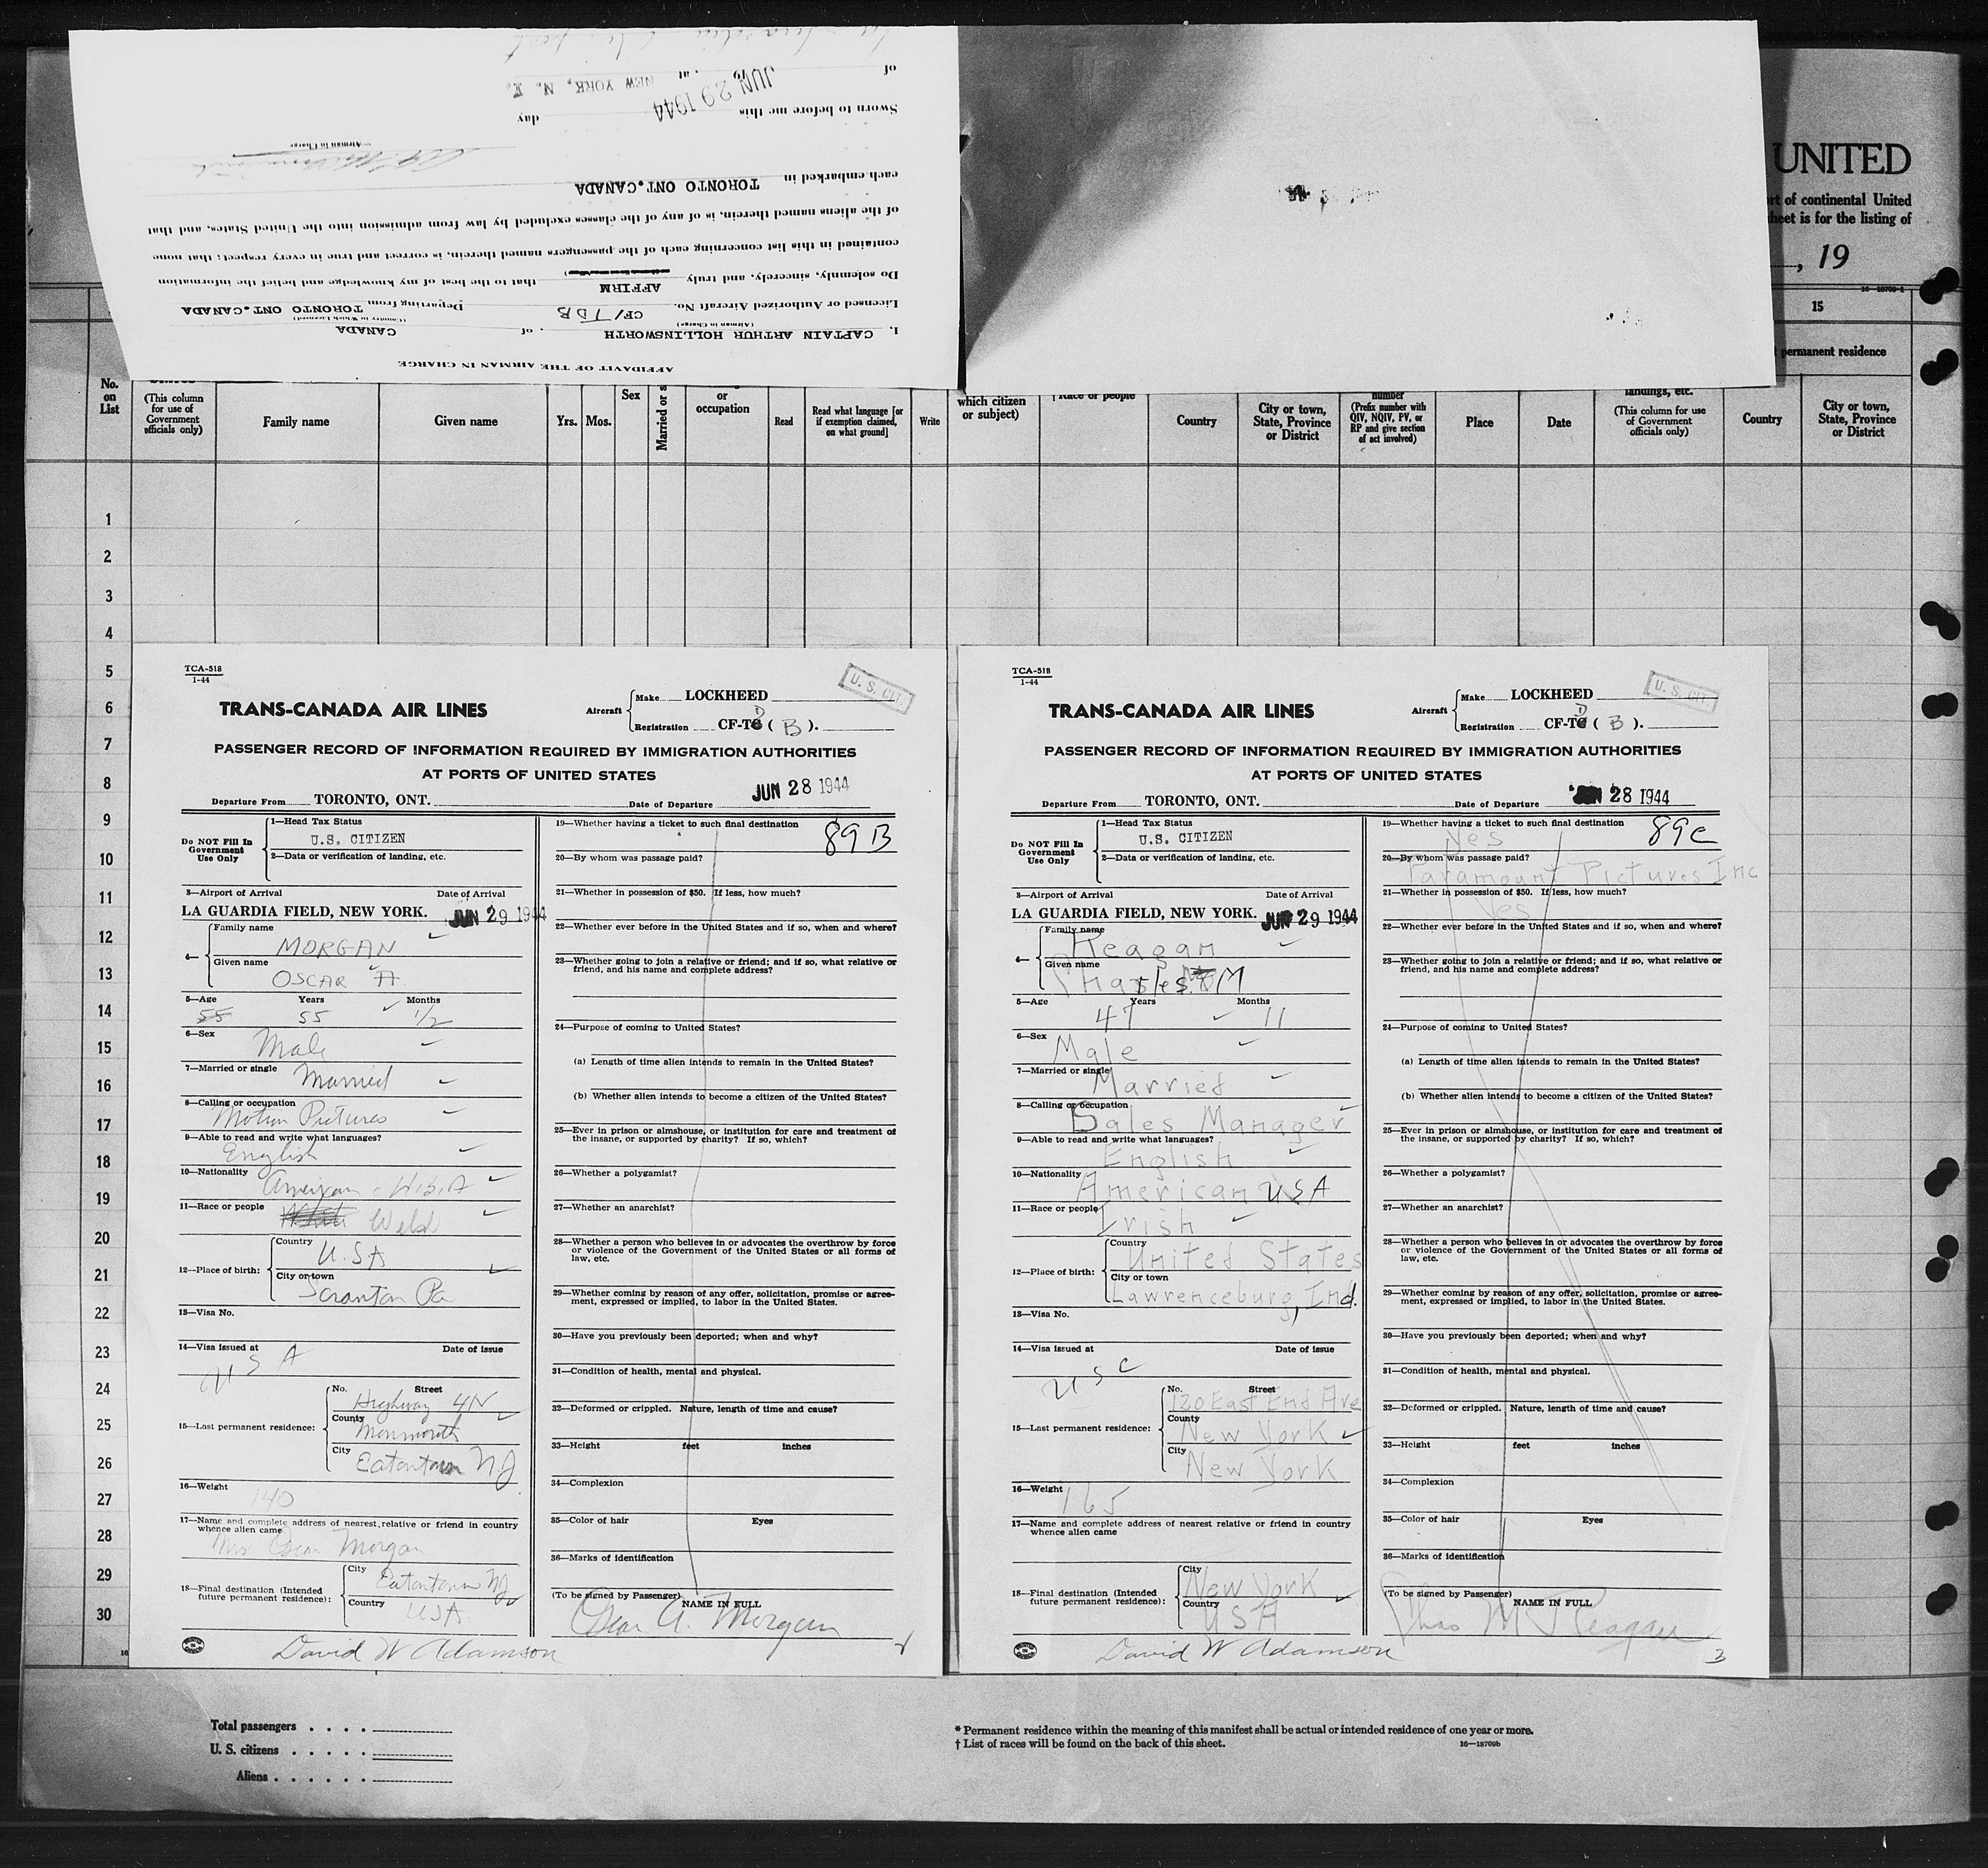 La Guardia Airport
of 19 , at NEW YORK, N. Y.
JUN 29 1944
Sworn to before me this day
Airman in Charge
each embarked in TORONTO ONT.CANADA
of the aliens named therein, is of any of the classes excluded by law from admission into the United States, and that
contained in this list concerning each of the passengers named therein, is correct and true in every respect; that none
Do solemnly, sincerely, and truly AFFIRM that to the best of my knowledge and belief the information
Licensed or Authorized Aircraft No. CF/TDB Departing from TORONTO ONT.CANADA
(Airman in Charge) (Country in Which Licensed)
I, CAPTAIN ARTHUR HOLLINSWORTH , of CANADA
AFFIDAVIT OF THE AIRMAN IN CHARGE
UNITED
rt of continental United
heet is for the listing of
, 19
16—18709-1
15
permanent residence
No. on List
(This column for use of Government officials only)
Family name
Given name
Yrs.
Mos.
Sex
Married or s
or occupation
Read
Read what language [or if exemption claimed, on what ground]
Write
which citizen or subject)
Race or people
Country
City or town, State, Province or District
number (Prefix number with QIV, NQIV, PV, or RP and give section of act involved)
Place
Date
landings, etc. (This column for use of Government officials only)
Country
City or town, State, Province or District
1
2
3
4
5
6
7
8
9
10
11
12
13
14
15
16
17
18
19
20
21
22
23
24
25
26
27
28
29
30
TCA-518
1-44
U. S. CIT.
TRANS-CANADA AIR LINES
Aircraft
Make LOCKHEED
Registration CF-TD ( B ).
PASSENGER RECORD OF INFORMATION REQUIRED BY IMMIGRATION AUTHORITIES
AT PORTS OF UNITED STATES
Departure From TORONTO, ONT. Date of Departure JUN 28 1944
Do NOT Fill In Government Use Only
1—Head Tax Status
U.S. CITIZEN
2—Data or verification of landing, etc.
3—Airport of Arrival Date of Arrival
LA GUARDIA FIELD, NEW YORK. JUN 29 1944
4—
Family name
MORGAN
Given name
OSCAR A
5—Age Years Months
55 55 1/2
6—Sex
Male
7—Married or single Married
8—Calling or occupation
Motion Pictures
9—Able to read and write what languages?
English
10—Nationality
American - U.S.A
11—Race or people White Welsh
12—Place of birth:
Country
U.SA
City or town
Scranton Pa
13—Visa No.
14—Visa issued at Date of issue
U S A
15—Last permanent residence:
No. Street
Highway 4N
County
Monmouth
City
Eatontown NJ
16—Weight
140
17—Name and complete address of nearest relative or friend in country
whence alien came
Mrs Oscar Morgan
18—Final destination (Intended future permanent residence):
City
Eatontown NJ
Country
USA
David W Adamson
19—Whether having a ticket to such final destination 89B
20—By whom was passage paid?
21—Whether in possession of $50. If less, how much?
22—Whether ever before in the United States and if so, when and where?
23—Whether going to join a relative or friend; and if so, what relative or
friend, and his name and complete address?
24—Purpose of coming to United States?
(a) Length of time alien intends to remain in the United States?
(b) Whether alien intends to become a citizen of the United States?
25—Ever in prison or almshouse, or institution for care and treatment of
the insane, or supported by charity? If so, which?
26—Whether a polygamist?
27—Whether an anarchist?
28—Whether a person who believes in or advocates the overthrow by force
or violence of the Government of the United States or all forms of
law, etc.
29—Whether coming by reason of any offer, solicitation, promise or agree-
ment, expressed or implied, to labor in the United States.
30—Have you previously been deported; when and why?
31—Condition of health, mental and physical.
32—Deformed or crippled. Nature, length of time and cause?
33—Height feet inches
34—Complexion
35—Color of hair Eyes
36—Marks of identification
(To be signed by Passenger)
NAME IN FULL
Oscar A. Morgan
TCA-518
1-44
U. S. CIT.
TRANS-CANADA AIR LINES
Aircraft
Make LOCKHEED
Registration CF-TD ( B ).
PASSENGER RECORD OF INFORMATION REQUIRED BY IMMIGRATION AUTHORITIES
AT PORTS OF UNITED STATES
Departure From TORONTO, ONT. Date of Departure JUN 28 1944
Do NOT Fill In Government Use Only
1—Head Tax Status
U.S. CITIZEN
2—Data or verification of landing, etc.
3—Airport of Arrival Date of Arrival
LA GUARDIA FIELD, NEW YORK. JUN 29 1944
4—
Family name
Reagan
Given name
Charles M
5—Age Years Months
47 11
6—Sex
Male
7—Married or single
Married
8—Calling or occupation
Sales Manager
9—Able to read and write what languages?
English
10—Nationality
American USA
11—Race or people
Irish
12—Place of birth:
Country
United States
City or town
Lawrenceburg, Ind.
13—Visa No.
14—Visa issued at Date of issue
USC
15—Last permanent residence:
No. Street
120 East End Ave
County
New York
City
New York
16—Weight
165
17—Name and complete address of nearest relative or friend in country
whence alien came
18—Final destination (Intended future permanent residence):
City
New York
Country
USA
David W Adamson
19—Whether having a ticket to such final destination
Yes 89C
20—By whom was passage paid?
Paramount Pictures Inc
21—Whether in possession of $50. If less, how much?
Yes
22—Whether ever before in the United States and if so, when and where?
23—Whether going to join a relative or friend; and if so, what relative or
friend, and his name and complete address?
24—Purpose of coming to United States?
(a) Length of time alien intends to remain in the United States?
(b) Whether alien intends to become a citizen of the United States?
25—Ever in prison or almshouse, or institution for care and treatment of
the insane, or supported by charity? If so, which?
26—Whether a polygamist?
27—Whether an anarchist?
28—Whether a person who believes in or advocates the overthrow by force
or violence of the Government of the United States or all forms of
law, etc.
29—Whether coming by reason of any offer, solicitation, promise or agree-
ment, expressed or implied, to labor in the United States.
30—Have you previously been deported; when and why?
31—Condition of health, mental and physical.
32—Deformed or crippled. Nature, length of time and cause?
33—Height feet inches
34—Complexion
35—Color of hair Eyes
36—Marks of identification
(To be signed by Passenger)
NAME IN FULL
Chas M Reagan
3
Total passengers . . . .
U. S. citizens . . . . .
Aliens . . . . . .
* Permanent residence within the meaning of this manifest shall be actual or intended residence of one year or more.
† List of races will be found on the back of this sheet.
16—18709b